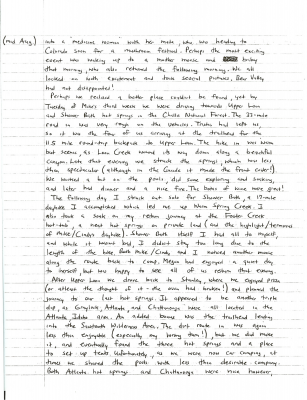 (mid Aug) into a medicine woman with her mate, who was heading to
Colorado soon for a mushroom festival. Perhaps the most exciting
event was waking up to a mother moose and baby
that morning, who also returned the following morning. We all
looked on with excitement and took several pictures. Bear Valley
had not disappointed!
Perhaps we realized a better place couldn't be found, yet by
Tuesday of that third week we were driving towards Upper Loon
and Shower Bath hot springs in the Challis National Forest. The 33-mile
road in was very rough on the vehicles. Trucks had
so it was the four of us arriving at the trailhead for the
11.5 mile round-trip backpack to Upper Loon. The hike in was warm
but scenic as Loon Creek wound its way down along a beautiful
canyon. Late that evening we struck the springs, which was less
than spectacular (although in the Guide it made the front cover!)
We worked a bit on the pools, did some exploring and soaking
and later had dinner and a nice fire. The bottles of wine were great!
The following day I struck out solo for Shower Bath, a 17-mile
dayhike I accomplished which led me up Warm Spring Creek. I
also took a soak on my return journey at the Foster Creek
hot-tub, a neat hot springs on private land (and the highlight/terminus
of Mike/Cindy's dayhike). Shower Bath itself I had all to myself,
and while it wasn't bad, I didn't stay too long due to the
length of the hike. Both Mike/Cindy and I noticed another moose
along the route back to camp. Megan had enjoyed a quiet day
to herself but was happy to see all of us return that evening.
After Upper Loon we drove back to Stanley, where we enjoyed pizza
(or at least the thought of it - the oven had broken!) and planned the
journey to our last hot springs. It appeared to be another triple
dip, as Atlanta and Chattanooga were all located in the
Atlanta, Idaho area. An added bonus was the trailhead leading
into the Sawtooth Wilderness Area. The dirt route in was again
less than enjoyable (especially my wrong turn!), but we did make
it, and eventually found the three hot springs and a place
to set up tents. Unfortunately, as we were now car camping, at
times we shared the pools with less than desirable company.
Both Atlanta hot springs and Chattanooga were nice however,